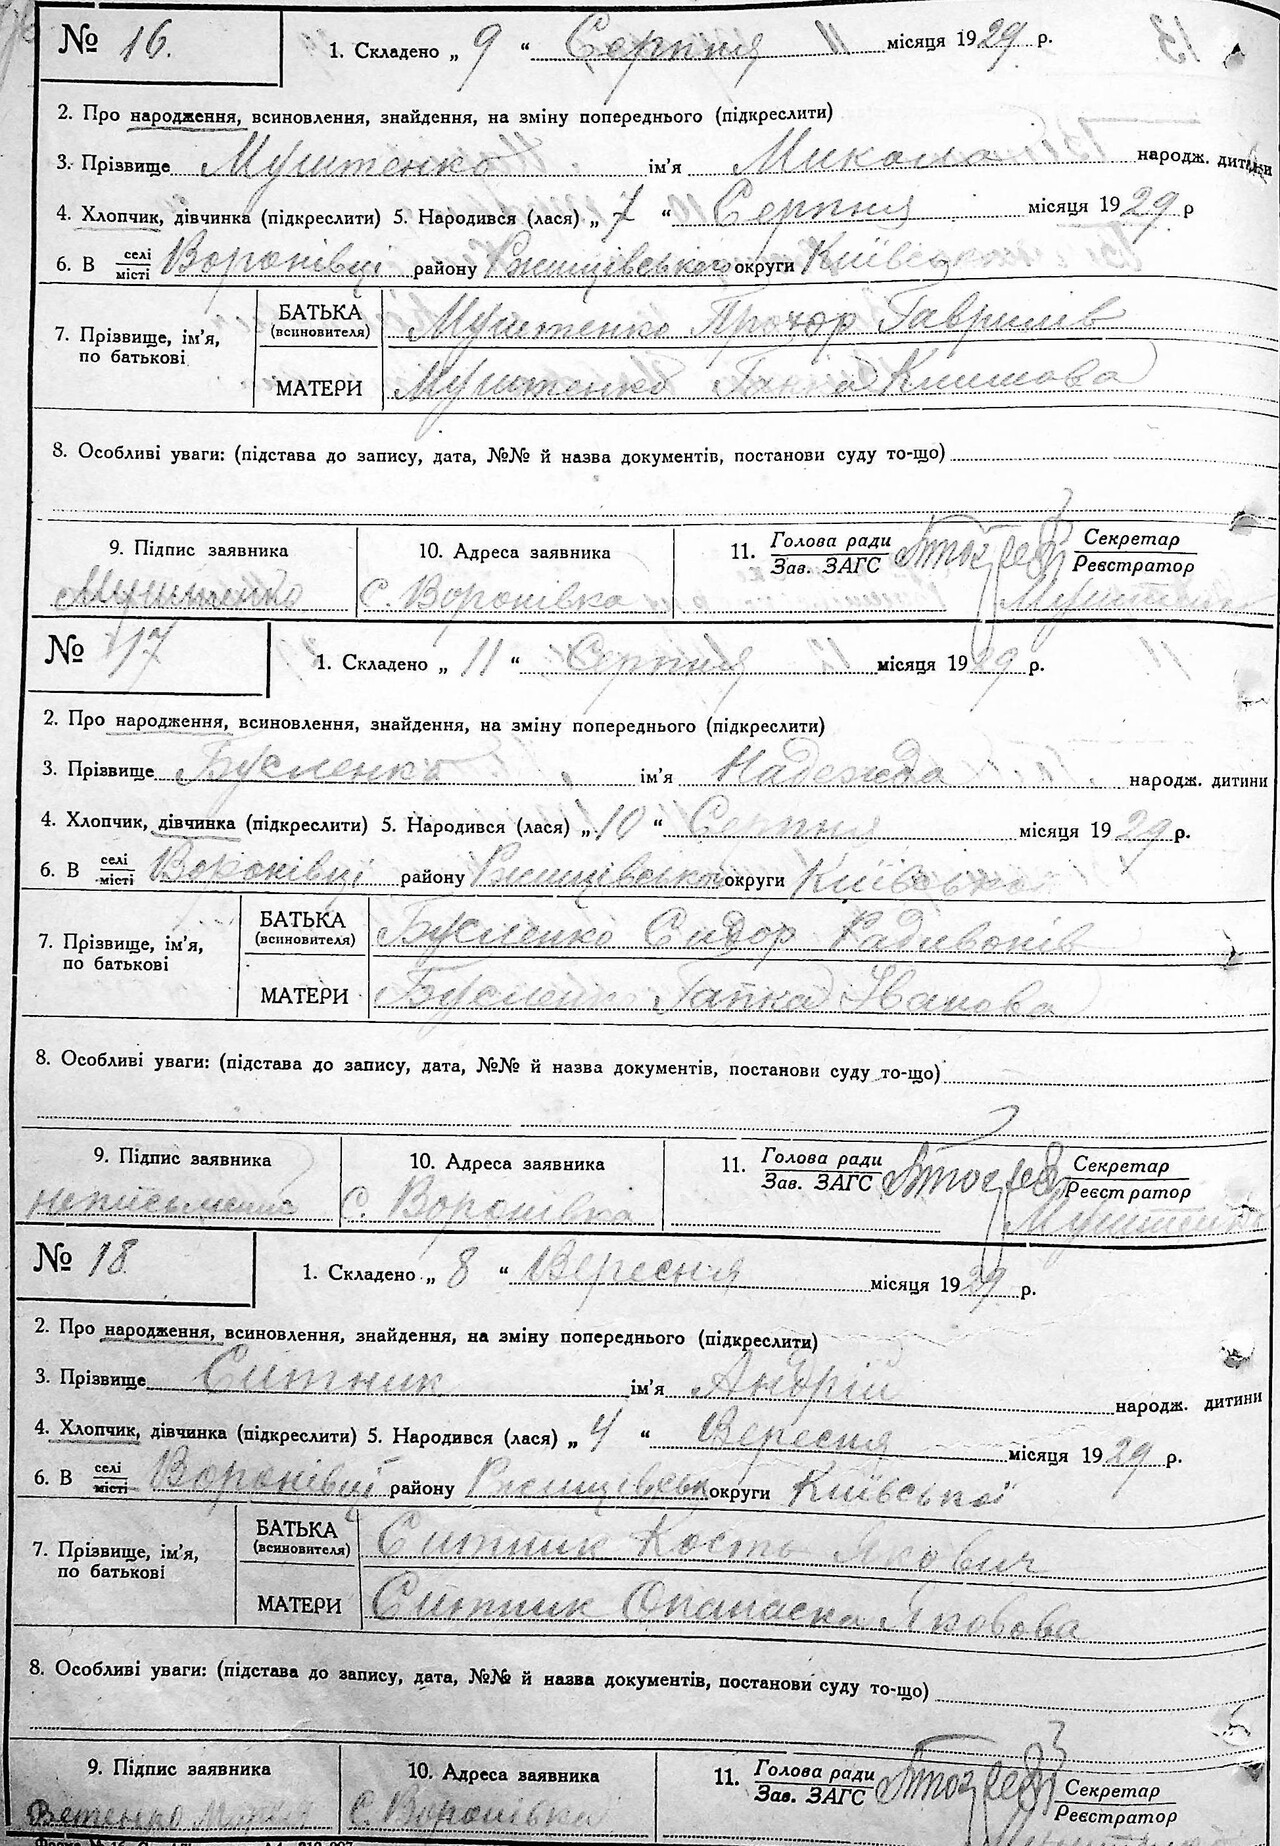 № 16.
1. Складено „ 9 “ Серпня місяця 1929 р.
2. Про народження, всиновлення, знайдення, на зміну попереднього (підкреслити)
3. Прізвище Муштенко ім'я Микола народж. дитини
4. Хлопчик, дівчинка (підкреслити) 5. Народився (лася) „ 7 “ Серпня місяця 1929 р
6. В селі/місті Воронівці району Ржищівського округи Київсько
7. Прізвище, ім'я, по батькові
БАТЬКА (всиновителя) Муштенко Прохор Гаврилів
МАТЕРИ Муштенко Ганна Климова
8. Особливі уваги: (підстава до запису, дата, №№ й назва документів, постанови суду то-що)
9. Підпис заявника 10. Адреса заявника 11. Голова ради/Зав. ЗАГС Секретар/Реєстратор
Муштенко с. Воронівка Муштенко
№ 17
1. Складено „ 11 “ Серпня місяця 1929 р.
2. Про народження, всиновлення, знайдення, на зміну попереднього (підкреслити)
3. Прізвище Бусленко ім'я Надежда народж. дитини
4. Хлопчик, дівчинка (підкреслити) 5. Народився (лася) „ 10 “ Серпня місяця 1929 р.
6. В селі/місті Воронівці району Ржищівського округи Київсько
7. Прізвище, ім'я, по батькові
БАТЬКА (всиновителя) Бусленко Сидор Радивонів
МАТЕРИ Бусленко Гапка Іванова
8. Особливі уваги: (підстава до запису, дата, №№ й назва документів, постанови суду то-що)
9. Підпис заявника 10. Адреса заявника 11. Голова ради/Зав. ЗАГС Секретар/Реєстратор
неписьменна с. Воронівка Муштенко
№ 18
1. Складено „ 8 “ Вересня місяця 1929 р.
2. Про народження, всиновлення, знайдення, на зміну попереднього (підкреслити)
3. Прізвище Ситник ім'я Андрій народж. дитини
4. Хлопчик, дівчинка (підкреслити) 5. Народився (лася) „ 4 “ Вересня місяця 1929 р.
6. В селі/місті Воронівці району Ржищівськ округи Київської
7. Прізвище, ім'я, по батькові
БАТЬКА (всиновителя) Ситник Кость Якович
МАТЕРИ Ситник Опанаска Яковова
8. Особливі уваги: (підстава до запису, дата, №№ й назва документів, постанови суду то-що)
9. Підпис заявника 10. Адреса заявника 11. Голова ради/Зав. ЗАГС Секретар/Реєстратор
с. Воронівка